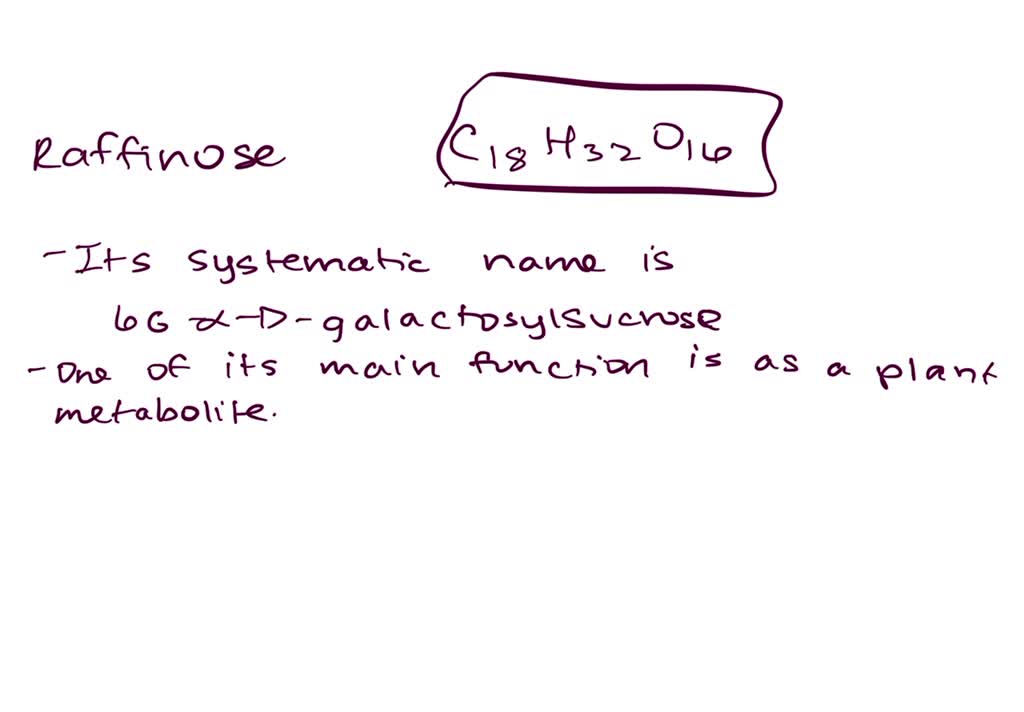 Raffinose C18 H32 O16
- Its systematic name is
6G α-D-galactosylsucrose
- One of its main function is as a plant
metabolite.